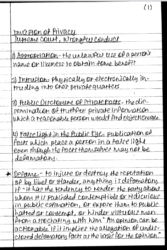 (1)
Invasion of Privacy
1) Appropriation - the unlawful use of a person's
name or likeness to obtain some benefit
2) Intrusion: physically or electronically in-
truding into one's private quarters
3) Public Disclosure of Private Facts - the dis-
semination of truthful private information
which a reasonable person would find objectionable
4) False Light in the Public Eye: publication of
facts which place a person in a false light
even though the facts themselves may not be
defamatory.
Defame - to injure or destroy the reputation
of by libel or slander, anything is defamatory
if it has the tendency to render the party about
whom it is published contemptible or ridiculous
in public estimation, or expose them to public
hatred or contempt, or hinder virtuous men
from associating with him. An opinion can be
actionable if it implies the allegation of undis-
closed defamatory facts as the basis for the opinion.